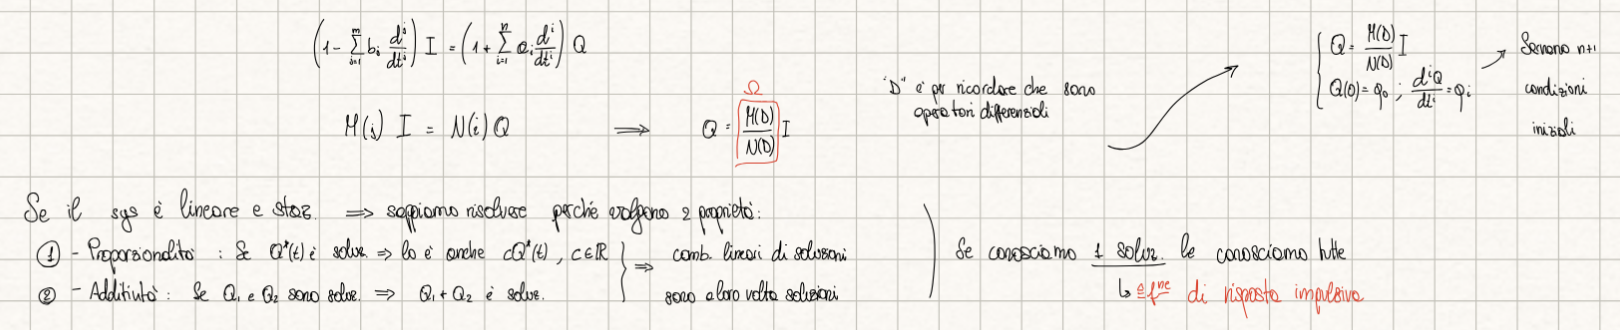 (1 - Σ_{j=1}^{m} b_j d^j/dt^j) I = (1 + Σ_{i=1}^{n} a_i d^i/dt^i) Q
M(j) I = N(i) Q ⟹ Q = M(D)/N(D) I
Ω
"D" è per ricordare che sono
operatori differenziali
{ Q = M(D)/N(D) I
Q(0) = q_0 ; d^iQ/dt^i = q_i
Servono n+1
condizioni
iniziali
Se il sys è lineare e staz. ⟹ sappiamo risolvere perché valgono 2 proprietà:
① - Proporzionalità : Se Q*(t) è soluz. ⟹ lo è anche cQ*(t), c∈ℝ
② - Additività : Se Q_1 e Q_2 sono soluz. ⟹ Q_1 + Q_2 è soluz.
} ⟹ comb. lineari di soluzioni
sono a loro volta soluzioni
Se conosciamo 1 soluz. le conosciamo tutte
↳ è fne di risposta impulsiva